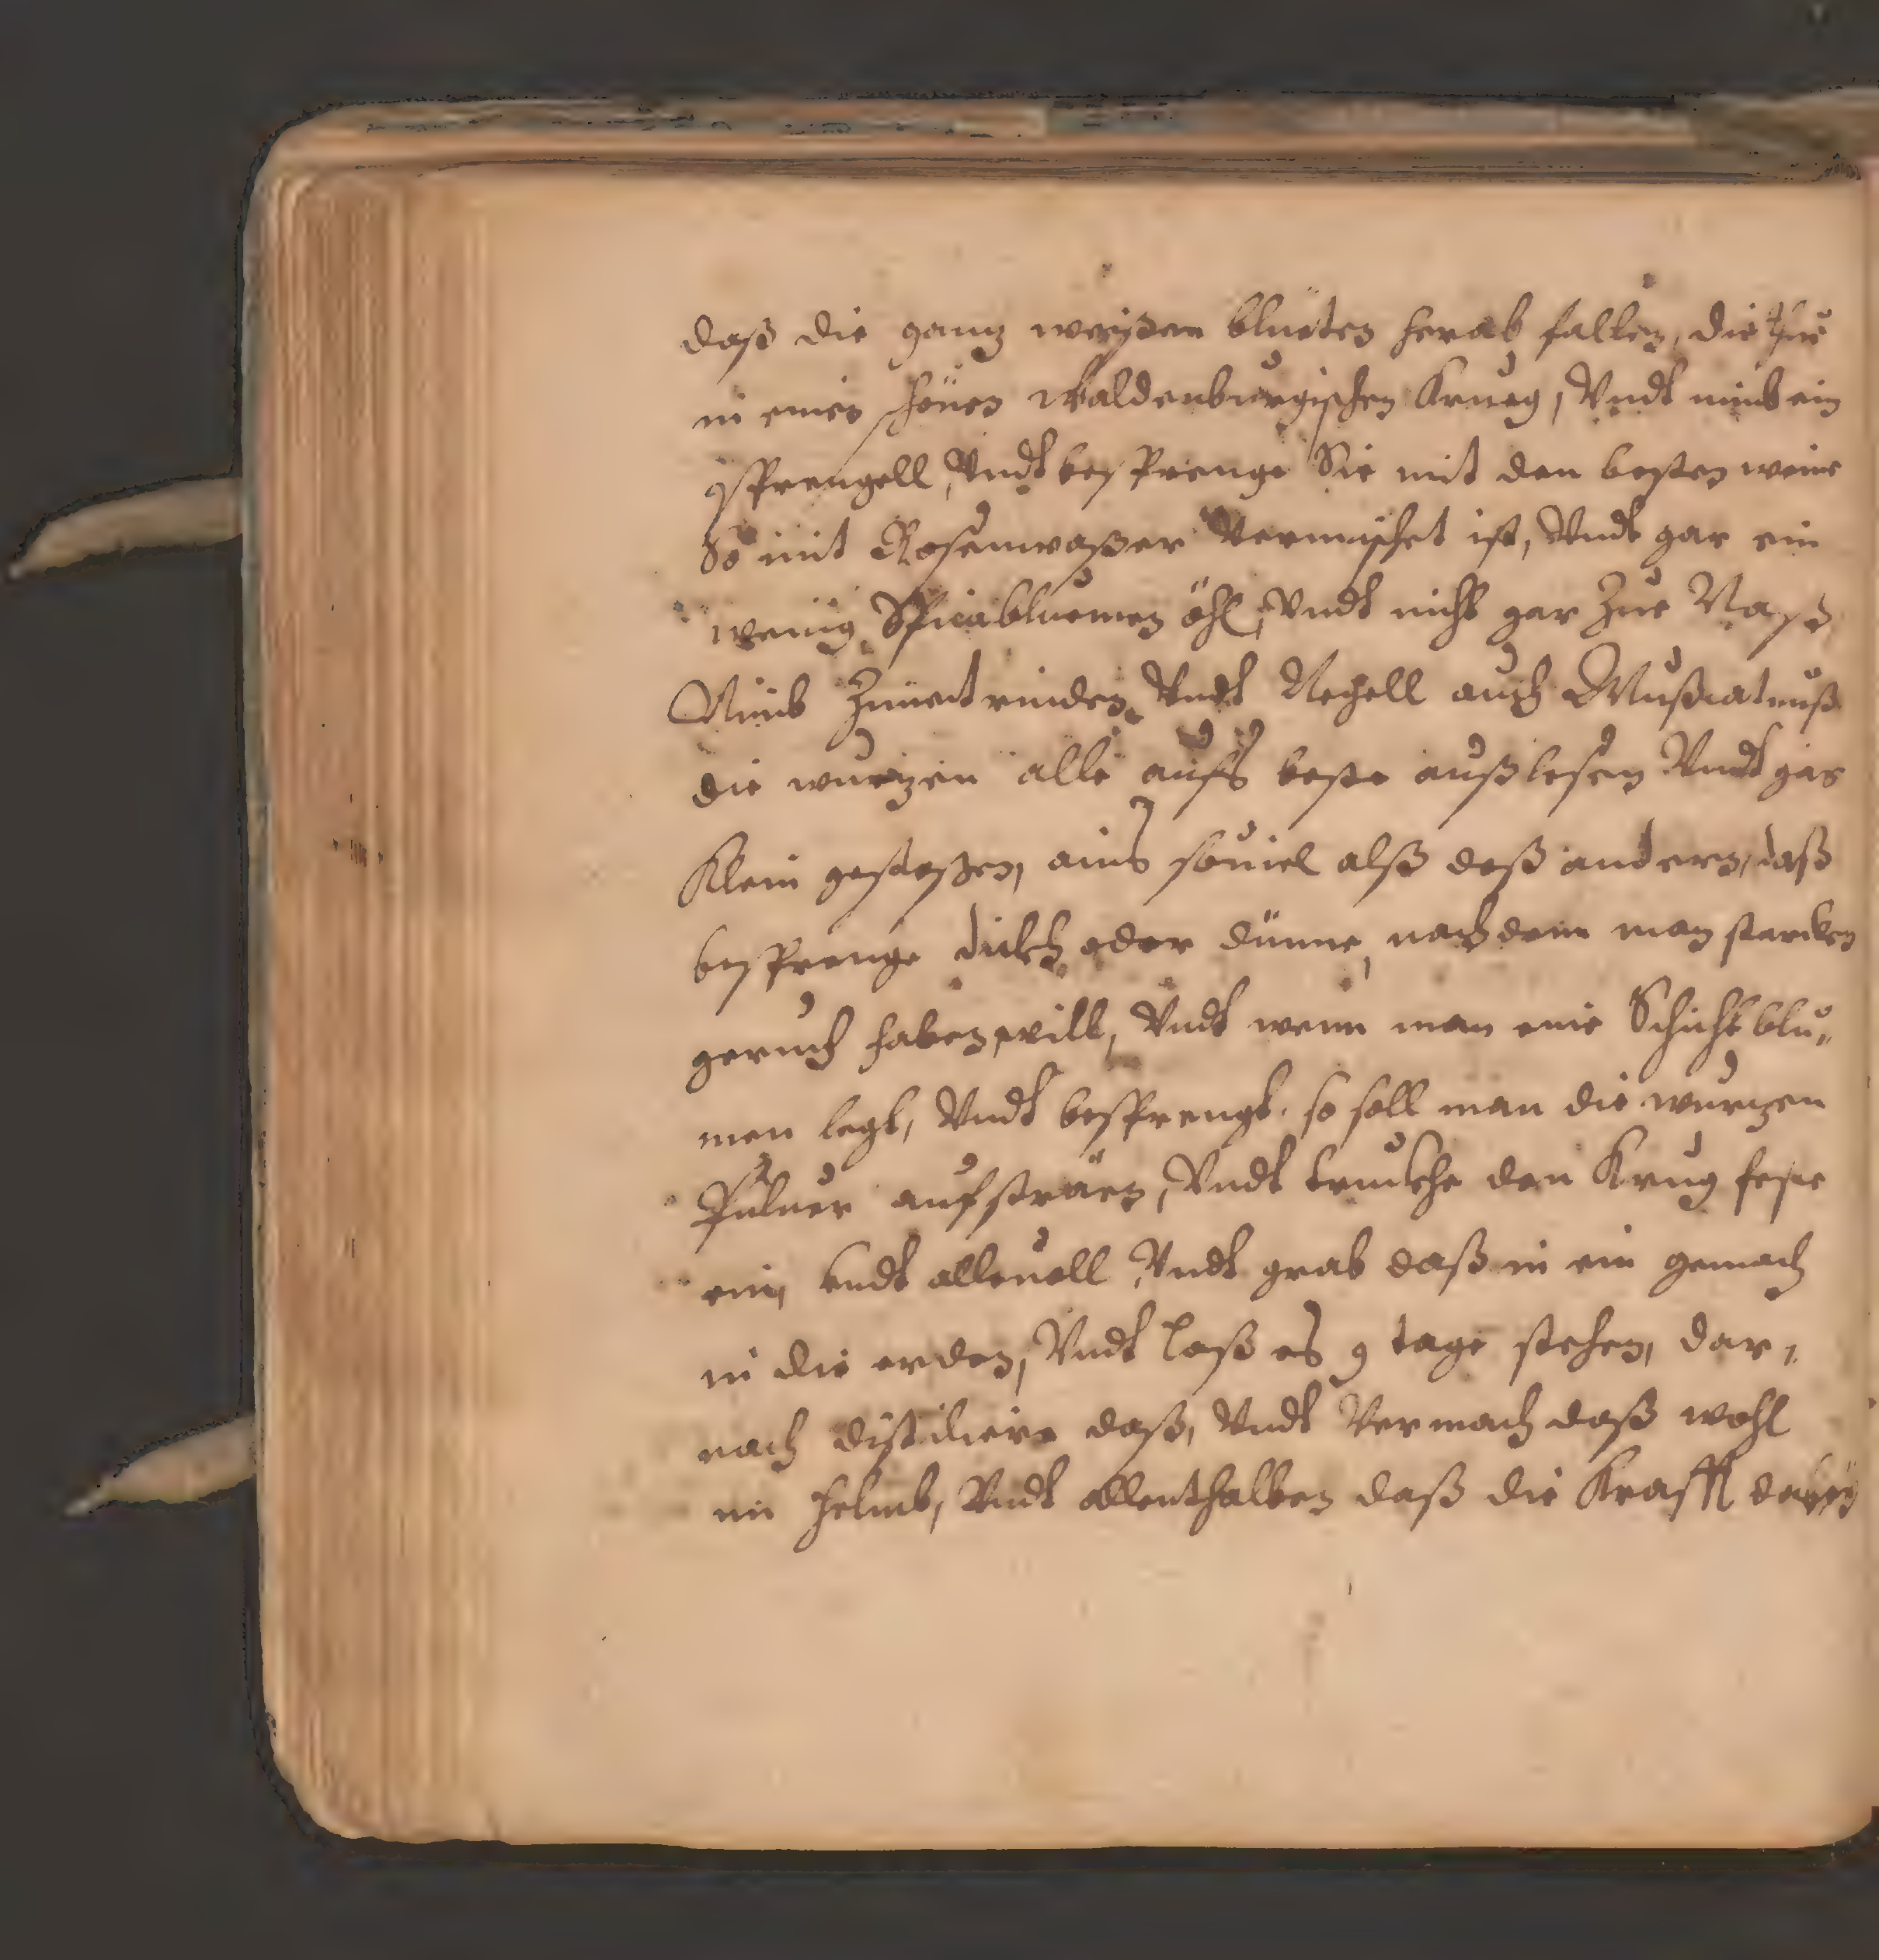 daß die gantz weißen blueten herab fallen, die thue
in einen schönen Waldenburgischen Krueg, Vndt nimb ein
sprengell, Vndt besprenge Sie mit den besten weine
So mit Rosenwaßer Vermischet ist, Vndt gar ein
wenig Spicabluemen öhl, Vndt nicht gar Zue Naß
Nimb Zimetrinden Vndt Negell auch Mußcatnuß
die wurtzen alle aufs beste außlesen Vndt gar
Klein gestoßen, eins souiel alß deß andern, daß
besprenge dicke oder dünne, nach dem man starcken
geruch haben will, Vndt wenn man eine Schicht blu„
men legt, Vndt besprengt, so soll man die wurtzen
Puluer aufsträen, Vndt trucke den Krug feste
ein, Vndt alleuoll, Vndt grab daß in ein gemach
in die erden, Vndt laß es 9 tage stehen, dar„
nach distiliere daß, Vndt Vermach daß wohl
im helmb, Vndt allenthalben daß die Krafft dabey